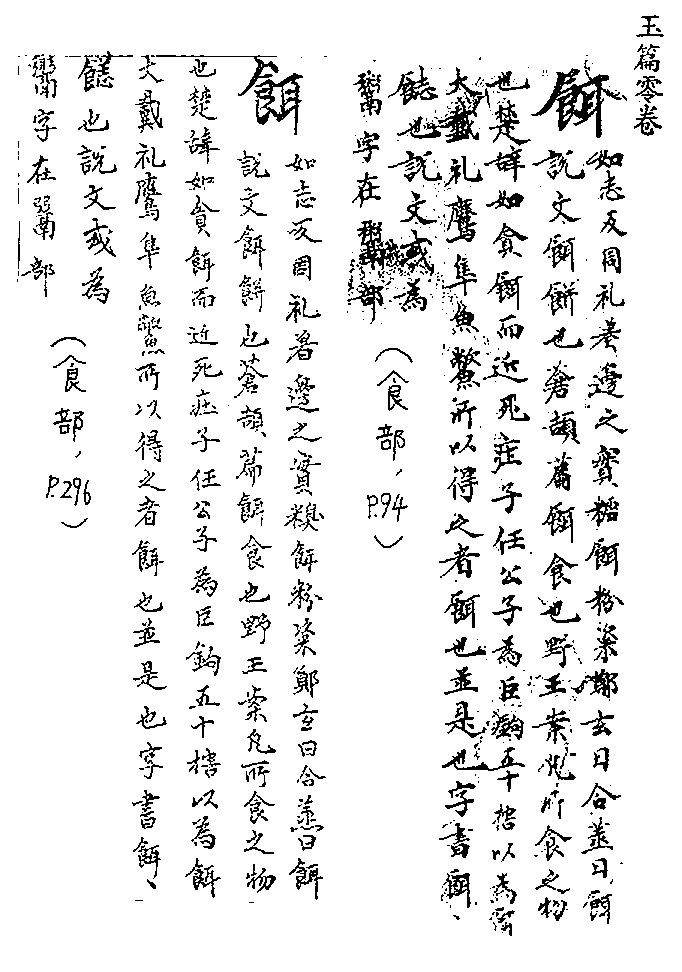 玉篇零卷
餌
如志反周礼羞邊之實糗餌粉粢鄭玄曰合蒸曰餌
說文餌餅也蒼頡篇餌食也野王案凡所食之物
也楚辞如貪餌而近死莊子任公子為巨鈎五十犗以為餌
大戴礼鷹隼魚鱉所以得之者餌也並是也字書餌、
餻也說文或為
䰞字在䰜部
(食部,P.94)
餌
如志反周礼羞邊之實糗餌粉粢鄭玄曰合蒸曰餌
說文餌餅也蒼頡篇餌食也野王案凡所食之物
也楚辞如貪餌而近死莊子任公子為巨鈎五十犗以為餌
大戴礼鷹隼魚鱉所以得之者餌也並是也字書餌、
餻也說文或為
字在䰜部
(食部,P.296)